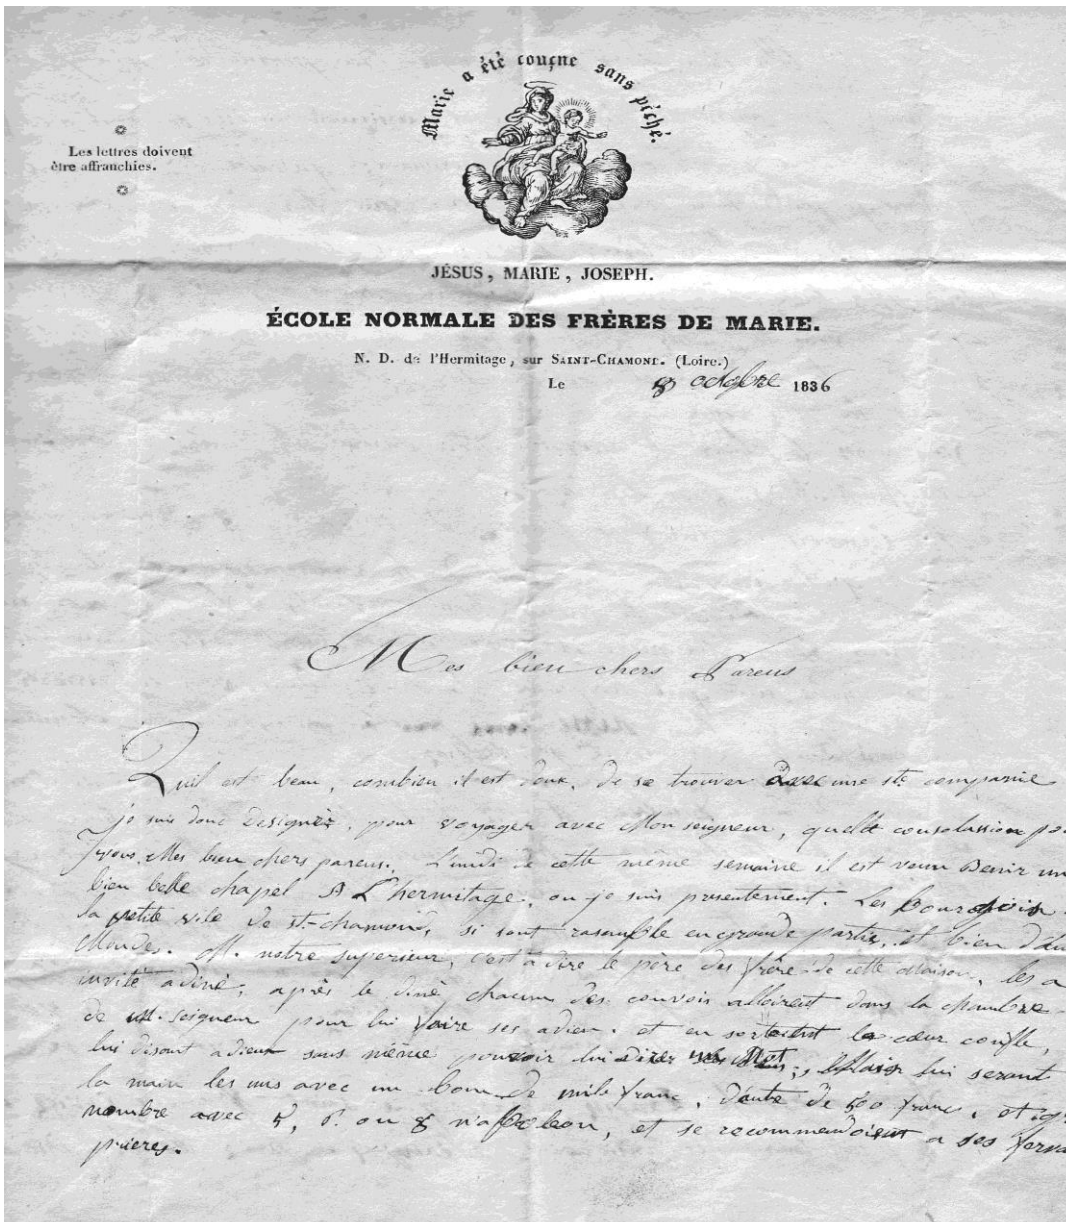 Marie a été conçue sans péché.
Les lettres doivent
être affranchies.
JÉSUS, MARIE, JOSEPH.
ÉCOLE NORMALE DES FRÈRES DE MARIE.
N. D. de l'Hermitage, sur SAINT-CHAMOND. (Loire.)
Le 8 octobre 1836
Mes bien chers Parens
Quil est beau, combien il est doux, de se trouver avec une ste compagnie
je suis donc designés, pour voyager avec Mon seigneur, quelle consolassion
vous, Mes bien chers parens. L'undi de cette même semaine il est venu Benir un
bien belle chapel A L'hermitage, ou je suis presentement. Les Bourgois
la petite vile de St-chamon, si sont rasemble en grande partie, et bien
Mondes. M. notre superieur, c'est a dire le père des frère de cette Maison, les a
invité a diné, après le diné chacun des convois alloirent dans la chambre
de M. seigneur pour lui faire ses adieu. et en sortoient le cœur confle,
lui disant adieux sans même pouvoir lui dire Mot, lui serant
la main les uns avec un bon de mile franc, d'autre de 500 franc, et
nombre avec 5, 6 ou 8 napoleon, et se recommendoient a ses
prieres.